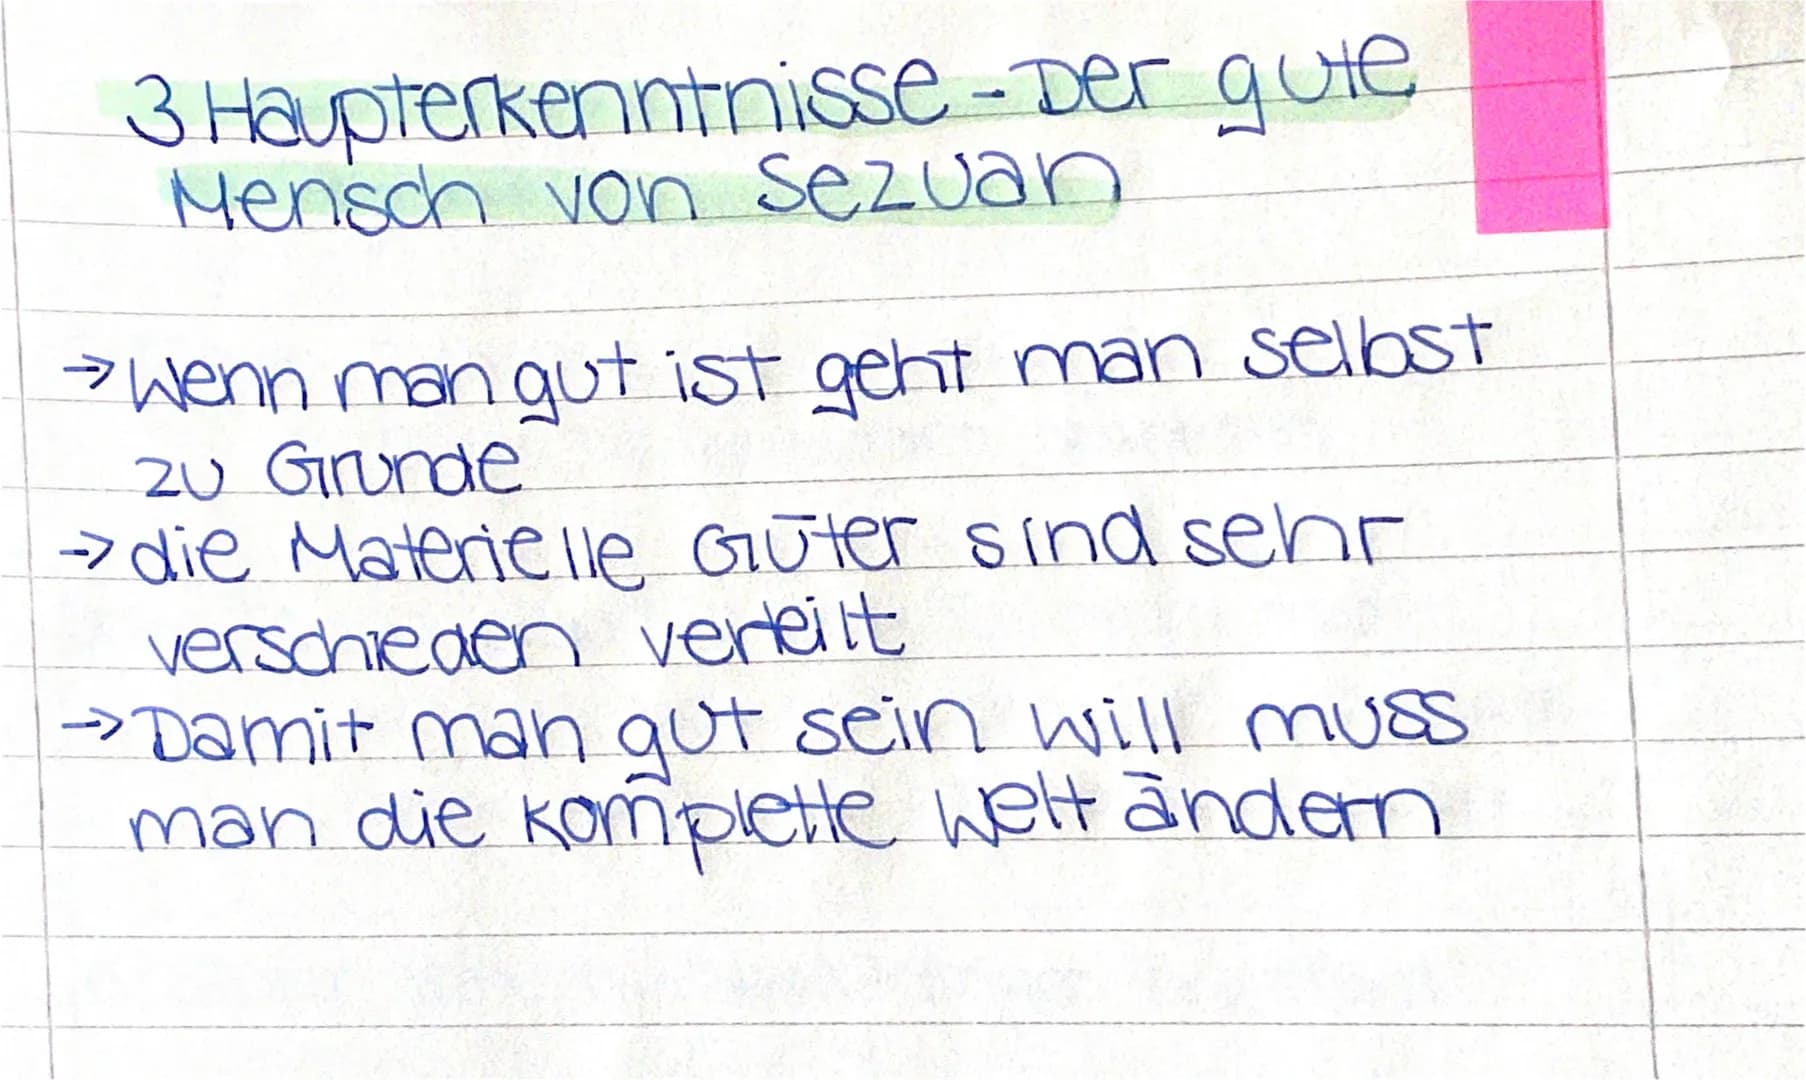 3 Haupterkenntnisse - Der gute
Mensch von Sezuan
→ Wenn man gut ist geht man selbst
zu Grunde
→ die Materielle Güter sind sehr
verschieden verteilt
→ Damit man gut sein will muss
man die komplette Welt ändern